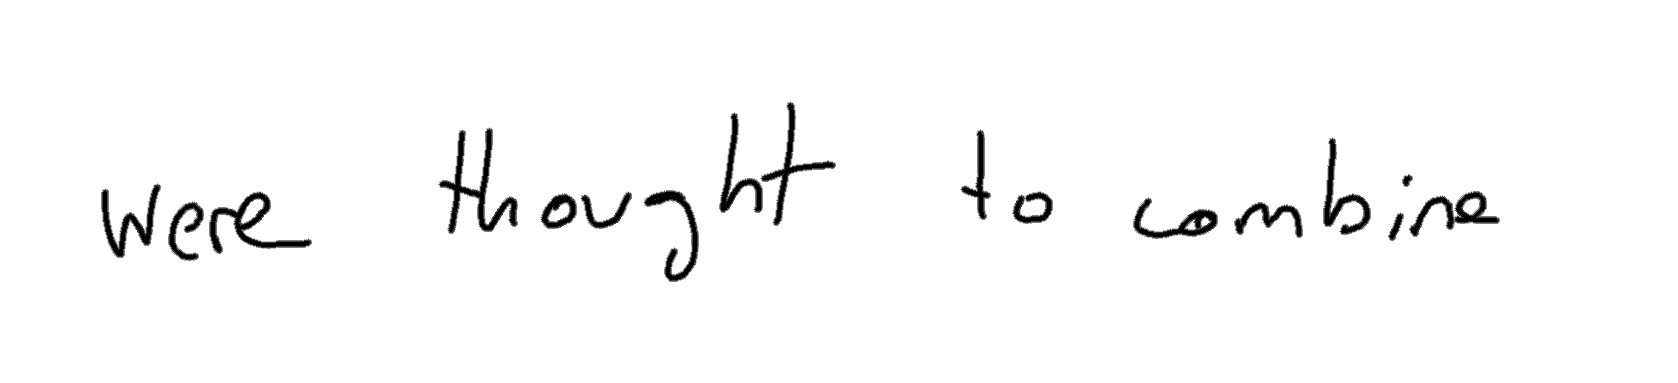 were thought to combine